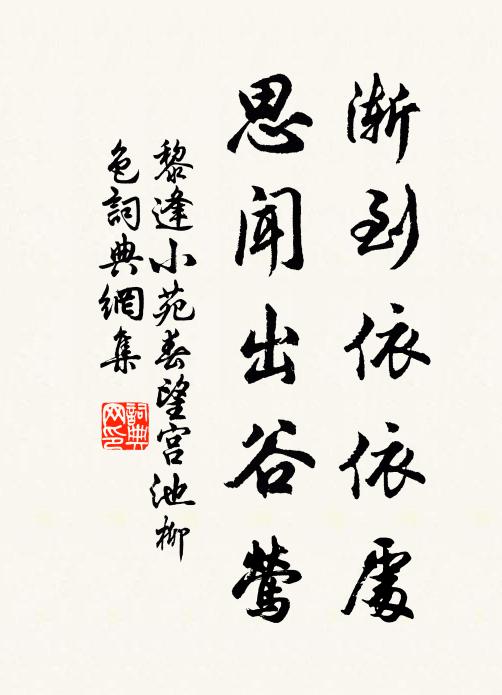 漸到依依處
思聞出谷鶯
黎逢小苑春望宮池柳
色詞典網集
詞典
网印